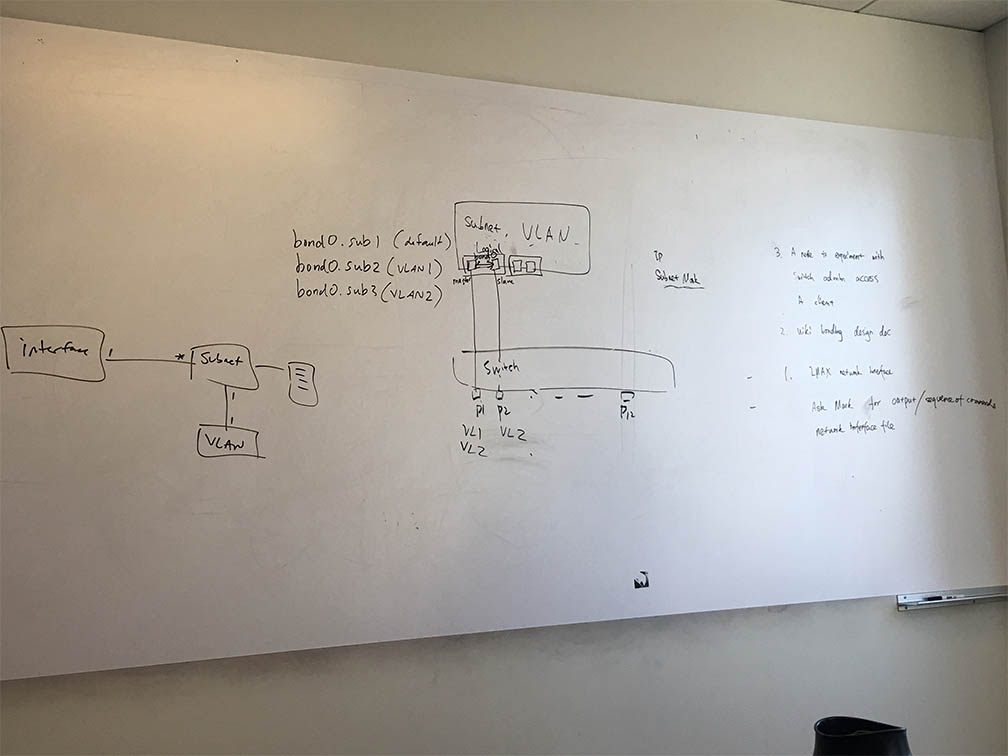 interface
1
*
Subnet
1
1
VLAN
bond0.sub1 (default)
bond0.sub2 (VLAN1)
bond0.sub3 (VLAN2)
Subnet, VLAN
Logical
bond0
slave
Switch
P1 P2 P12
VL1 VL2
VL2
IP
Subnet Mask
3. A node to experiment with
Switch admin access
A client
2. wiki bonding design doc
- 1. network interface
- Ask Mark for output/sequence of commands
network interface file